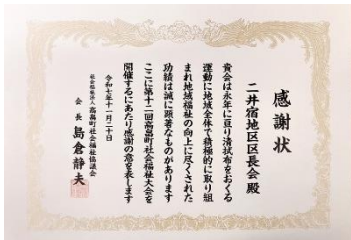 感謝状
二井宿地区区長会殿
貴会は永年に亘り清拭布をおくる
運動に地域全体で積極的に取り組
まれ地域福祉の向上に尽くされた
功績は誠に顕著なものがあります
ここに第十二回高畠町社会福祉大会を
開催するにあたり感謝の意を表します
令和七年十一月二十日
社会福祉法人高畠町社会福祉協議会
会長 島倉静夫